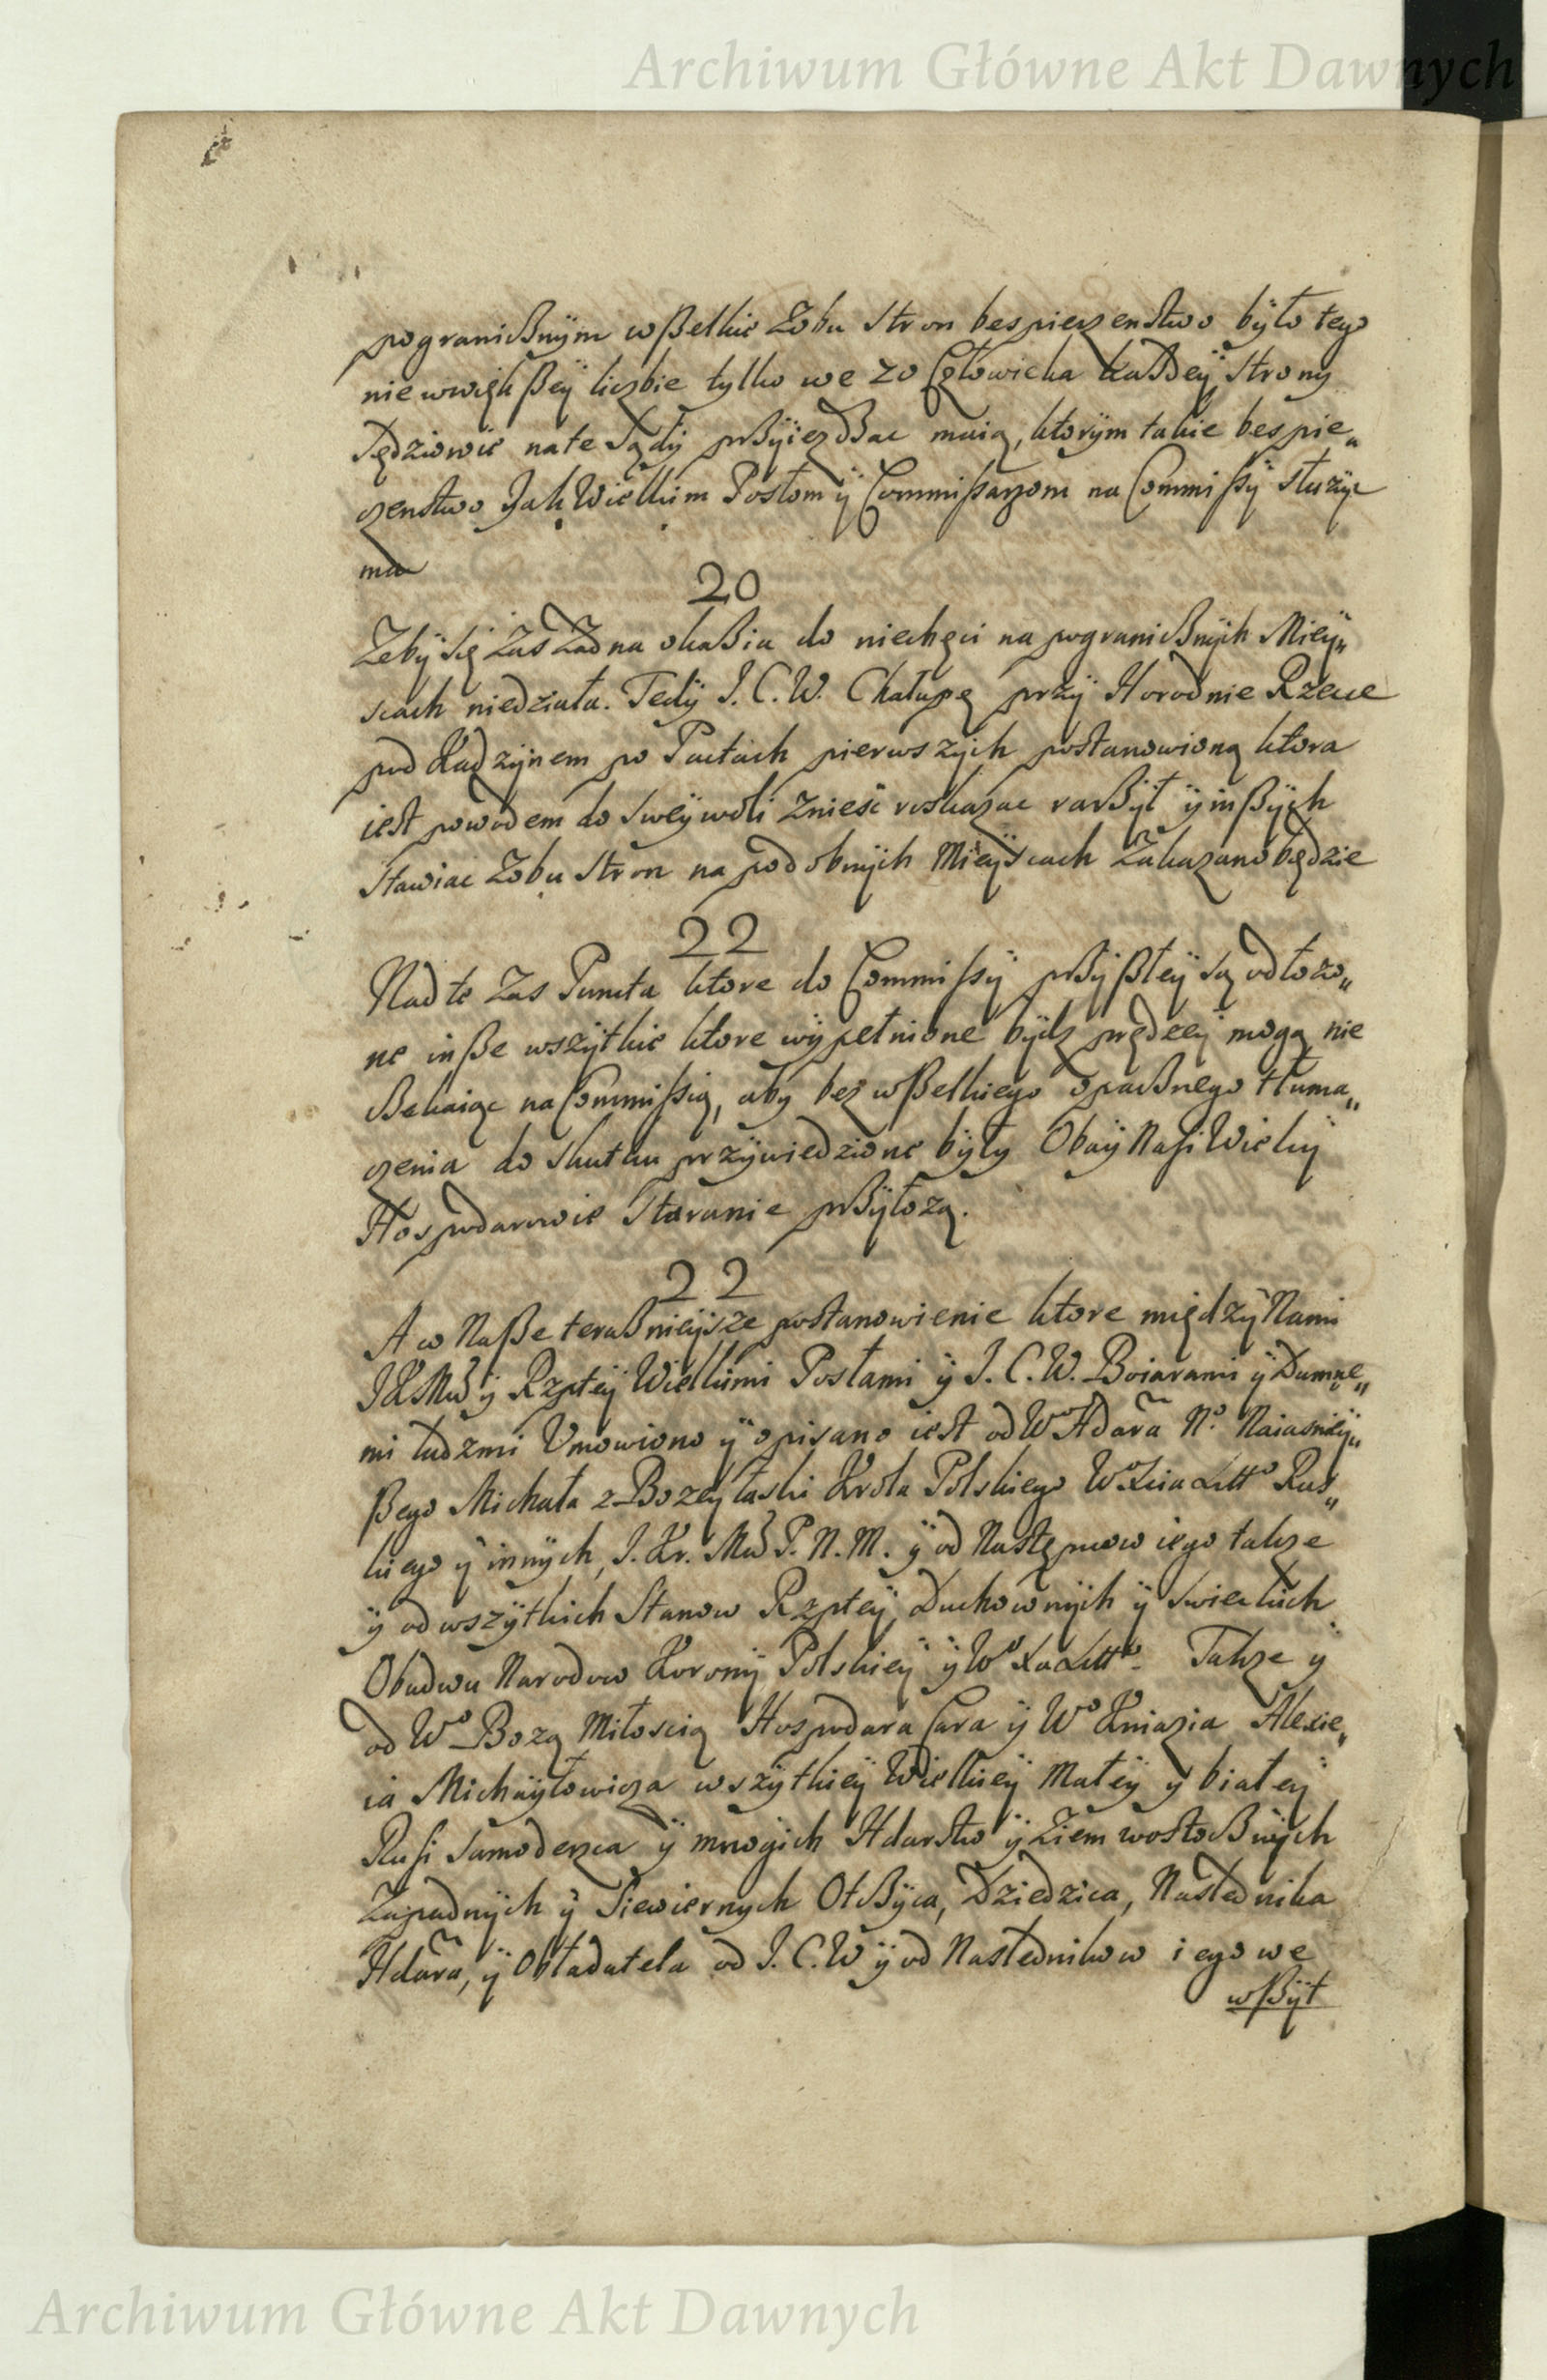 Archiwum Główne Akt Dawnych
pogranißnÿm wßelkie Zobu Stron bespieczenstwo było tego
nie wwiękßeÿ liczbie tylko we 20 Człowieka każdeÿ Strony
Sędziowie nate Sądÿ pßÿieżdżac maią, ktorÿm takie bespie„
czenstwo Jak Wielkim Posłom ÿ Commißarzom na Commißÿ służyc
ma
20
Zebÿ się Zas Żadna okaßia do niechęci na pogranißnÿch Mieÿ„
scach niedziała. Tedÿ J. C. W. Chałupę przÿ Horodnie Rzece
pod Kadzÿnem po Pactach pierwszÿch postanowioną ktora
iest powodem do sweÿwoli Znieść roskazac raczÿł ÿ inßÿch
Stawiac Zobu Stron na podobnÿch Mieÿscach Zakazano będzie
22
Nad te Zas Puncta ktore do Commißÿ pßÿßłeÿ są odłozo„
ne inße wszÿtkie ktore wÿpełnione bÿdz prędzeÿ mogą nie
ßekaiąc na Commißią, aby bez wßelkiego opaßnego tłuma„
czenia do skutku przÿwiedzione bÿłÿ Obaÿ Naßi Wielcÿ
Hospodarowie Staranie pßÿłozą.
22
A co Naße teraßnieÿsze postanowienie ktore międzÿ Nami
JKMci ÿ Rzpteÿ Wielkimi Posłami ÿ J. C. W. Boiarami ÿ Dumne„
mi ludzmi Umowiono ÿ opisano iest od Wº Hdara Nº Naiasnieÿ„
ßego Michała z Bozeÿ łaski Krola Polskiego Wº Xcia Littº Rus„
kiego ÿ innÿch, J. Kr. Mci P. N. M. ÿ od Następcow iego takze
ÿ od wszÿtkich Stanow Rzpteÿ Duchownÿch ÿ swieckich
Obudwu Narodow Koronÿ Polskieÿ ÿ Wº Xa Littº. Takze ÿ
od Wº Bozą Miłoscią Hospodara Cara ÿ Wº Kniazia Alexie„
ia Michaÿłowicza wszÿtkieÿ Wielkieÿ Małeÿ ÿ białeÿ
Rusi Samoderzca ÿ mnogich Hdarstw ÿ Ziem wostoßnÿch
Zapadnÿch ÿ Siewiernych Otßÿca, Dziedzica, Naslednika
Hdara, ÿ Obładatela od J. C. W ÿ od Naslednikow iego we
wßÿt
Archiwum Główne Akt Dawnych